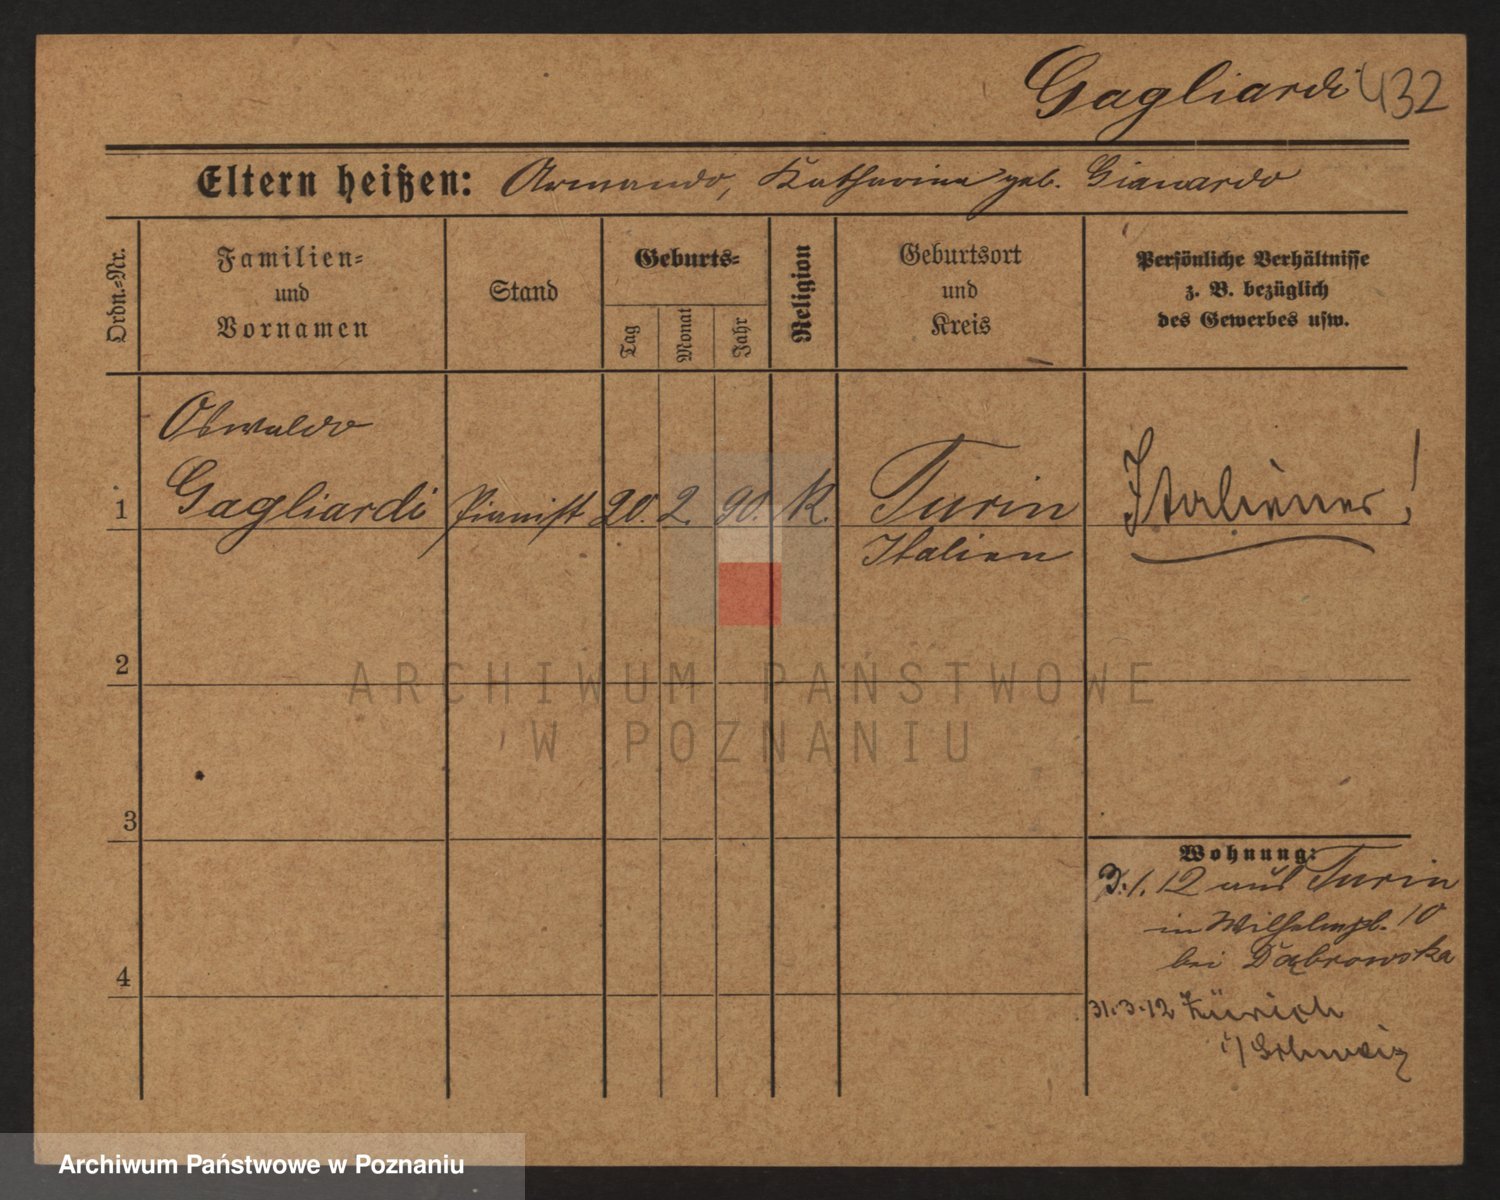 Gagliardi 432
Eltern heißen: Armando, Katharina geb. Gianardo
Ordn.-Nr.
Familien-
und
Vornamen
Stand
Geburts-
Tag
Monat
Jahr
Religion
Geburtsort
und
Kreis
Persönliche Verhältnisse
z. B. bezüglich
des Gewerbes usw.
Oswaldo
1 Gagliardi Pianist 20. 2. 90. K. Turin Italiener!
Italien
2
3
4
Wohnung:
3.1.12 aus Turin
in Wilhelmpl. 10
bei Dąbrowska
31.3.12 Zürich
i/ Schweiz
ARCHIWUM PAŃSTWOWE
W POZNANIU
Archiwum Państwowe w Poznaniu